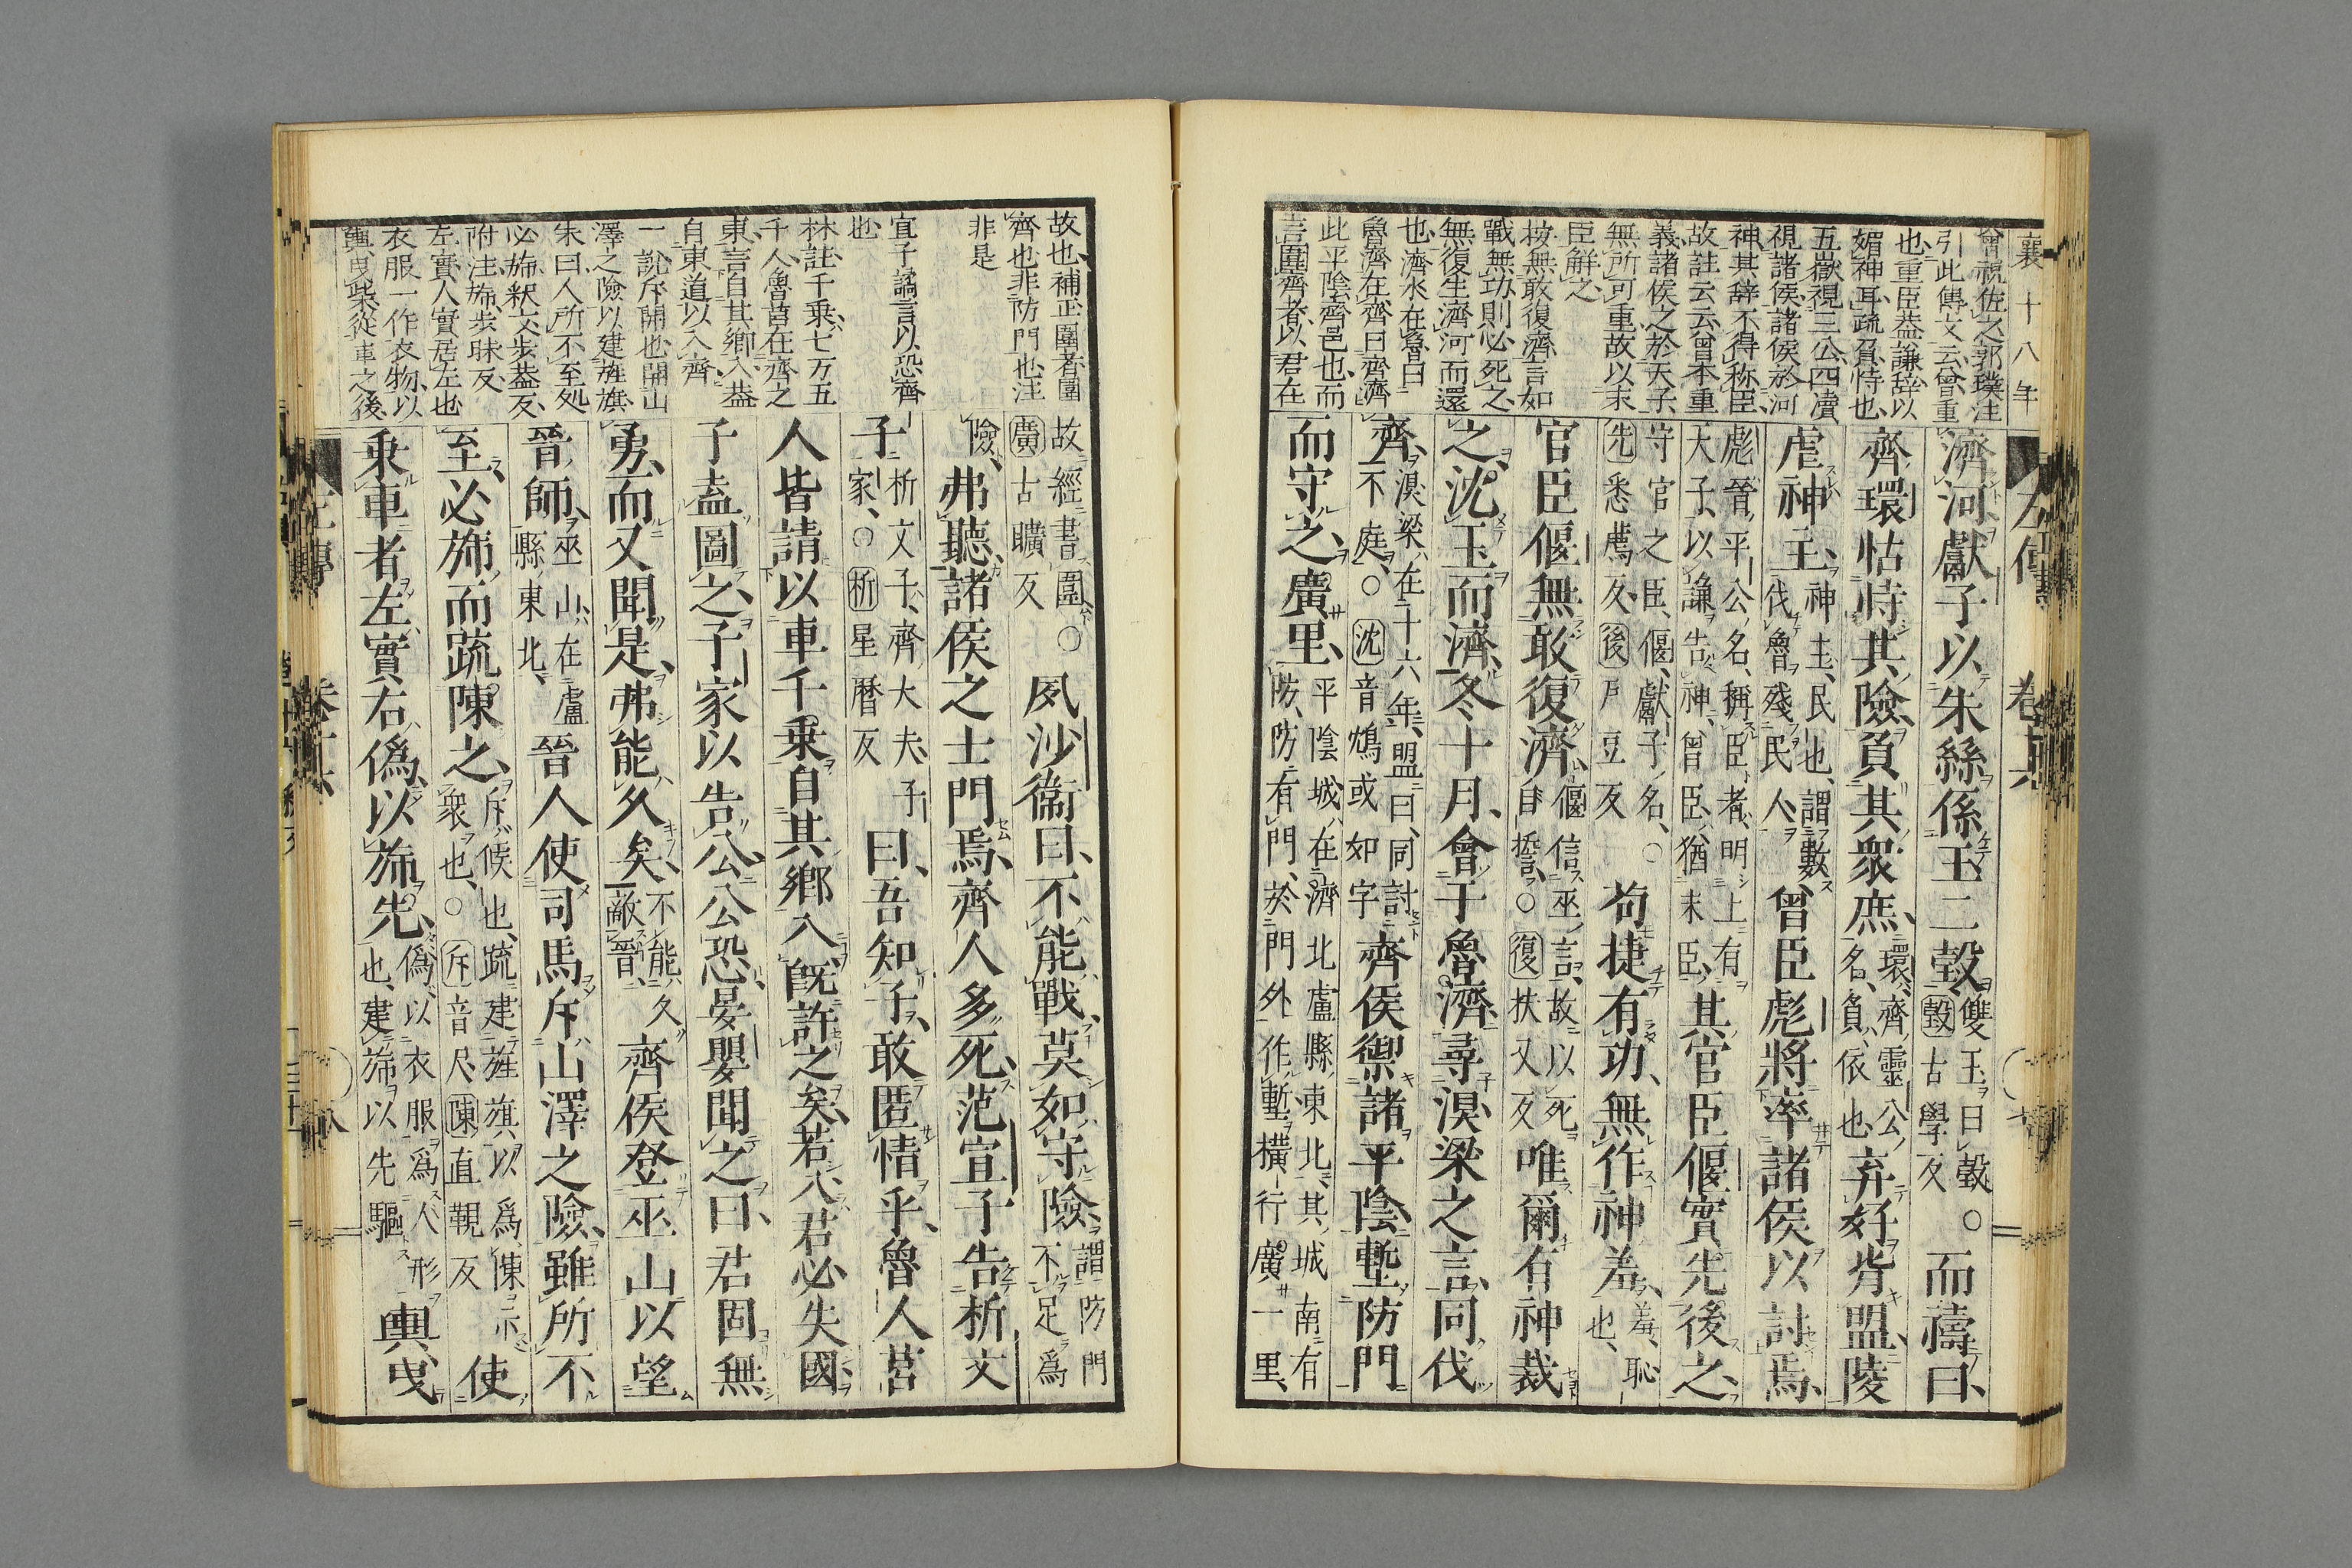 襄十八年
曾祝佐之郭璞注
引此傳文云曾重
也重臣葢謙辭以
媚神耳疏負恃也
五嶽視三公四凟
視諸侯諸侯於河
神其辭不得称臣
故註云云曾本重
義諸侯之於天子
無所可重故以末
臣解之
按無敢復濟言如
戰無功則必死之
無復生濟河而還
也濟水在魯曰
魯濟在齊曰齊濟
此平陰齊邑也而
言圍齊者以君在
濟河獻子以朱絲係玉二瑴雙玉曰瑴瑴古學反○而禱曰
齊環怙恃其險負其衆庶環齊靈公名負依也弃好背盟陵
虐神主神主民也謂數伐魯殘民人曾臣彪將率諸侯以討焉
彪晉平公名稱臣者明上有大子以謙告神曾臣猶末臣其官臣偃實先後之
守官之臣偃獻子名○先悉薦反後戶豆反苟捷有功無作神羞羞恥也
官臣偃無敢復濟偃信巫言故以死自誓○復扶又反唯爾有神裁
之沈玉而濟冬十月會于魯濟尋湨梁之言同伐
齊湨梁在十六年盟曰同討不庭○沈音鴆或如字齊侯禦諸平陰塹防門
而守之廣里平陰城在濟北盧縣東北其城南有防防有門於門外作塹橫行廣一里
故也補正圍者圍
齊也非防門也注
非是
宣子譎言以恐齊
也
林註千乗七万五
千人魯莒在齊之
東言自其鄉入葢
自東道以入齊
一說斥開也開山
澤之險以建旌旗
朱曰人所不至処
必斾釈文歩葢反
附注斾歩昧反
左實人實居左也
衣服一作衣物以
輿曳柴從車之後
故經書圍○廣古曠反夙沙衞曰不能戰莫如守險謂防門不足爲
險弗聽諸侯之士門焉齊人多死范宣子告析文
子析文子齊大夫子家○析星曆反曰吾知子敢匿情乎魯人莒
人皆請以車千乗自其鄉入既許之矣若入君必失國
子盍圖之子家以告公公恐晏嬰聞之曰君固無
勇而又聞是弗能久矣不能久敵晉齊侯登巫山以望
晉師巫山在盧縣東北晉人使司馬斥山澤之險雖所不
至必斾而疏陳之斥候也疏建旌旗以爲陳示衆也○斥音尺陳直覲反使
乗車者左實右僞以斾先僞以衣服爲人形也建斾以先驅輿曳